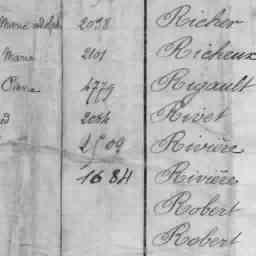 Marie Adolph 2098 Richer
Marie 2101 Richeux
Pierre 4779 Rigault
d 2084 Rivet
2509 Rivière
1684 Rivière
Robert
Robert